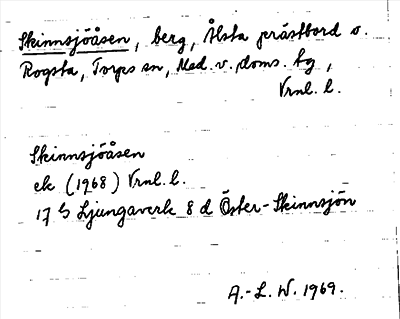 Skinnsjöåsen, berg, Ålsta prästbord o.
Rogsta, Torps sn, Med. v. doms. tg,
Vrnl. l.
Skinnsjöåsen
ek (1968) Vrnl. l.
17 G Ljungaverk 8 d Öster-Skinnsjön
A.-L. W. 1969.